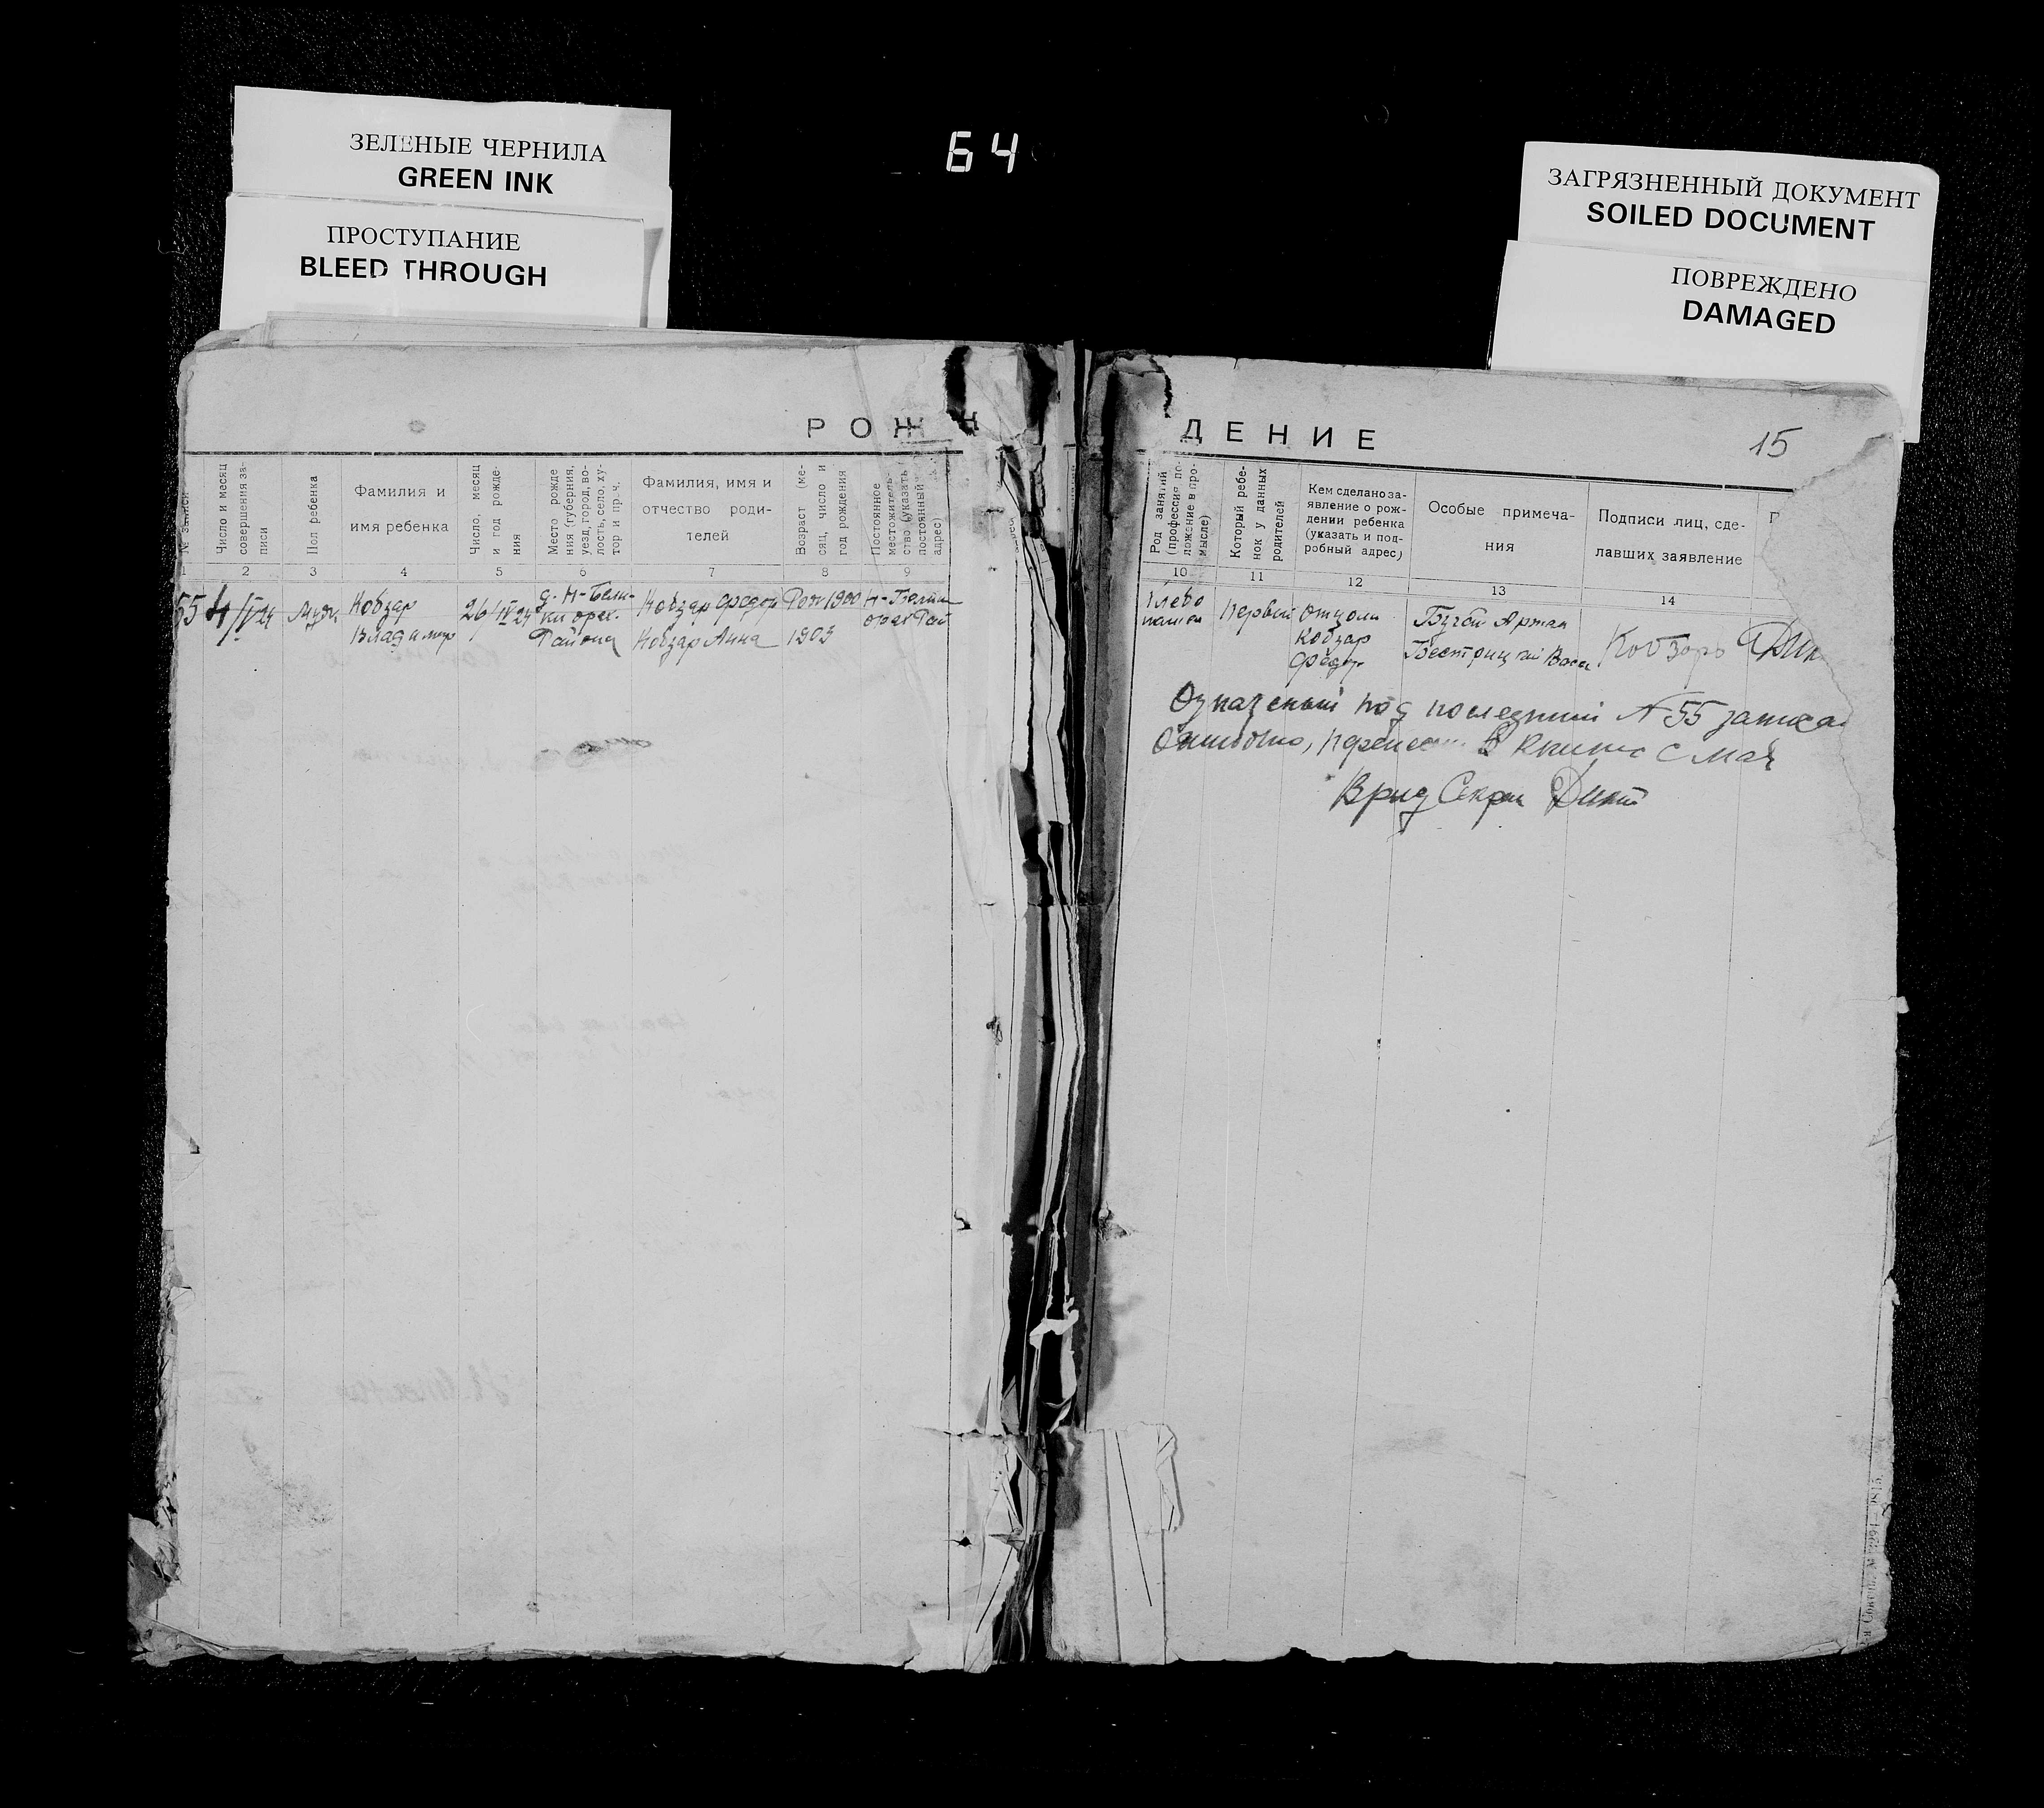 ЗЕЛЕНЫЕ ЧЕРНИЛА
GREEN INK
ПРОСТУПАНИЕ
BLEED THROUGH
64
ЗАГРЯЗНЕННЫЙ ДОКУМЕНТ
SOILED DOCUMENT
ПОВРЕЖДЕНО
DAMAGED
РОЖДЕНИЕ
15
№ записи
Число и месяц
совершения за-
писи
Пол ребенка
Фамилия и
имя ребенка
Число, месяц
и год рожде-
ния
Место рожде
ния (губерния,
уезд, город, во-
лость, село, ху-
тор и проч.
Фамилия, имя и
отчество роди-
телей
Возраст (ме-
сяц, число и
год рождения
Постоянное
местожитель-
ство (указать
постоянный
адрес)
Род занятий
(профессия, по-
ложение в про-
мысле)
Который ребе-
нок у данных
родителей
Кем сделано за-
явление о рож-
дении ребенка
(указать и под-
робный адрес)
Особые примеча-
ния
Подписи лиц, сде-
лавших заявление
1 2 3 4 5 6 7 8 9 10 11 12 13 14
55
4/V 24
муж
Кобзар
Владимир
26/IV 24
д. Н-Бели-
ки орех.
Района
Кобзар Федор
Кобзар Анна
1900
1903
Хлебо
пашец
Первый
Отцом
Кобзар
Федор
Кобзарь
последний № 55
В книгу с мая
Врид Секрет